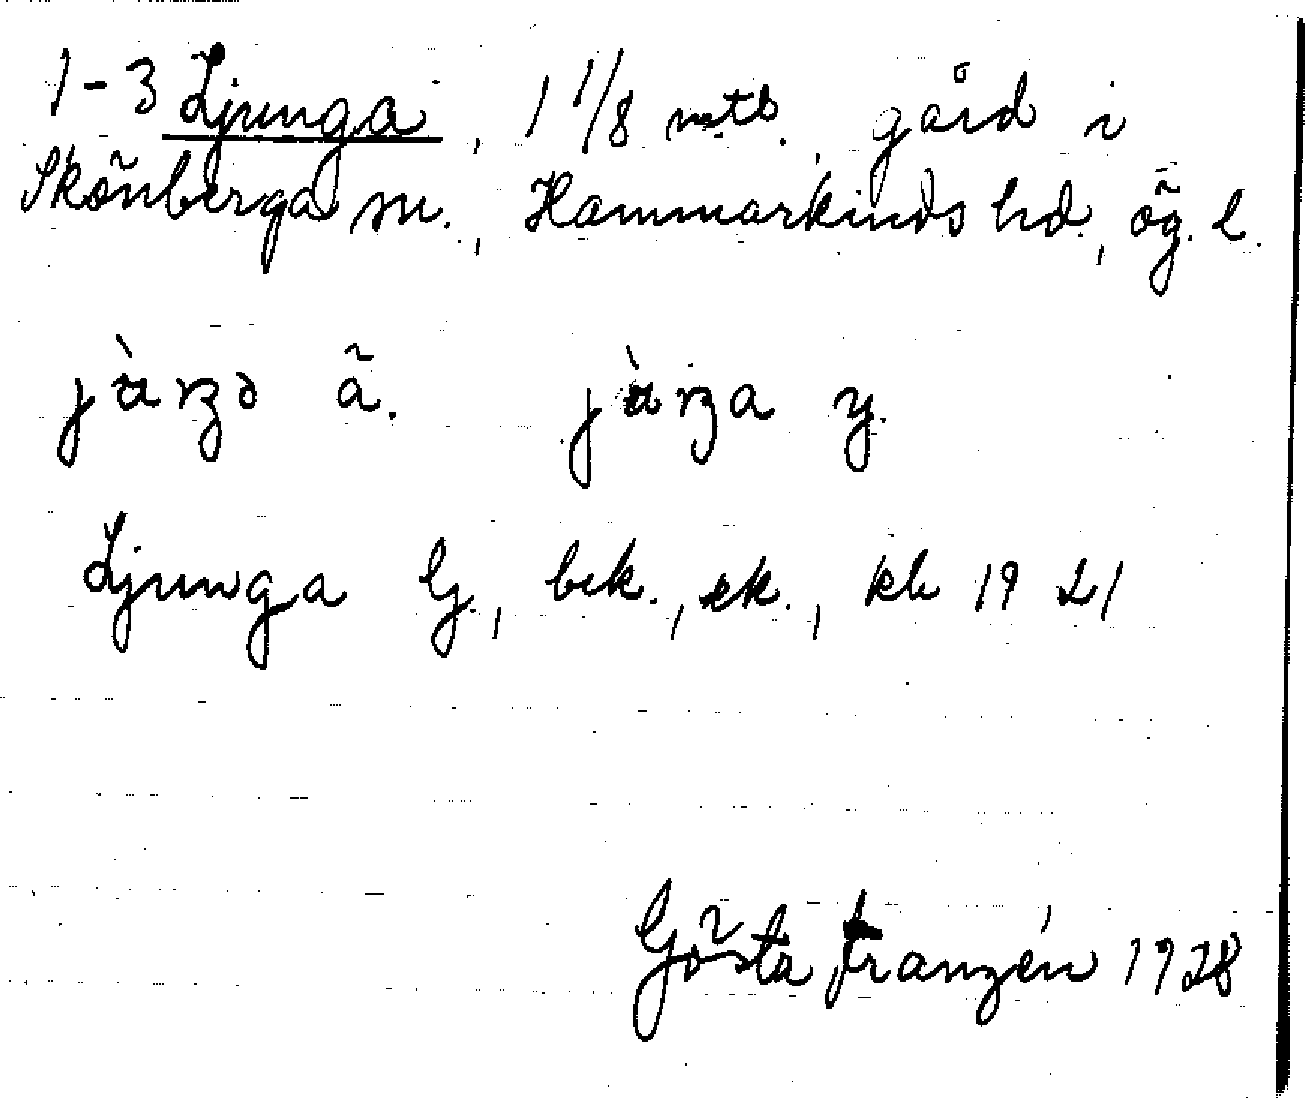 1-3 Ljunga, 1 1/8 mtl. gård i
Skönberga sn., Hammarkinds hd., ög. l.
ä. y.
Ljunga G., bek., ek., kb 1921
Gösta Franzén 1928